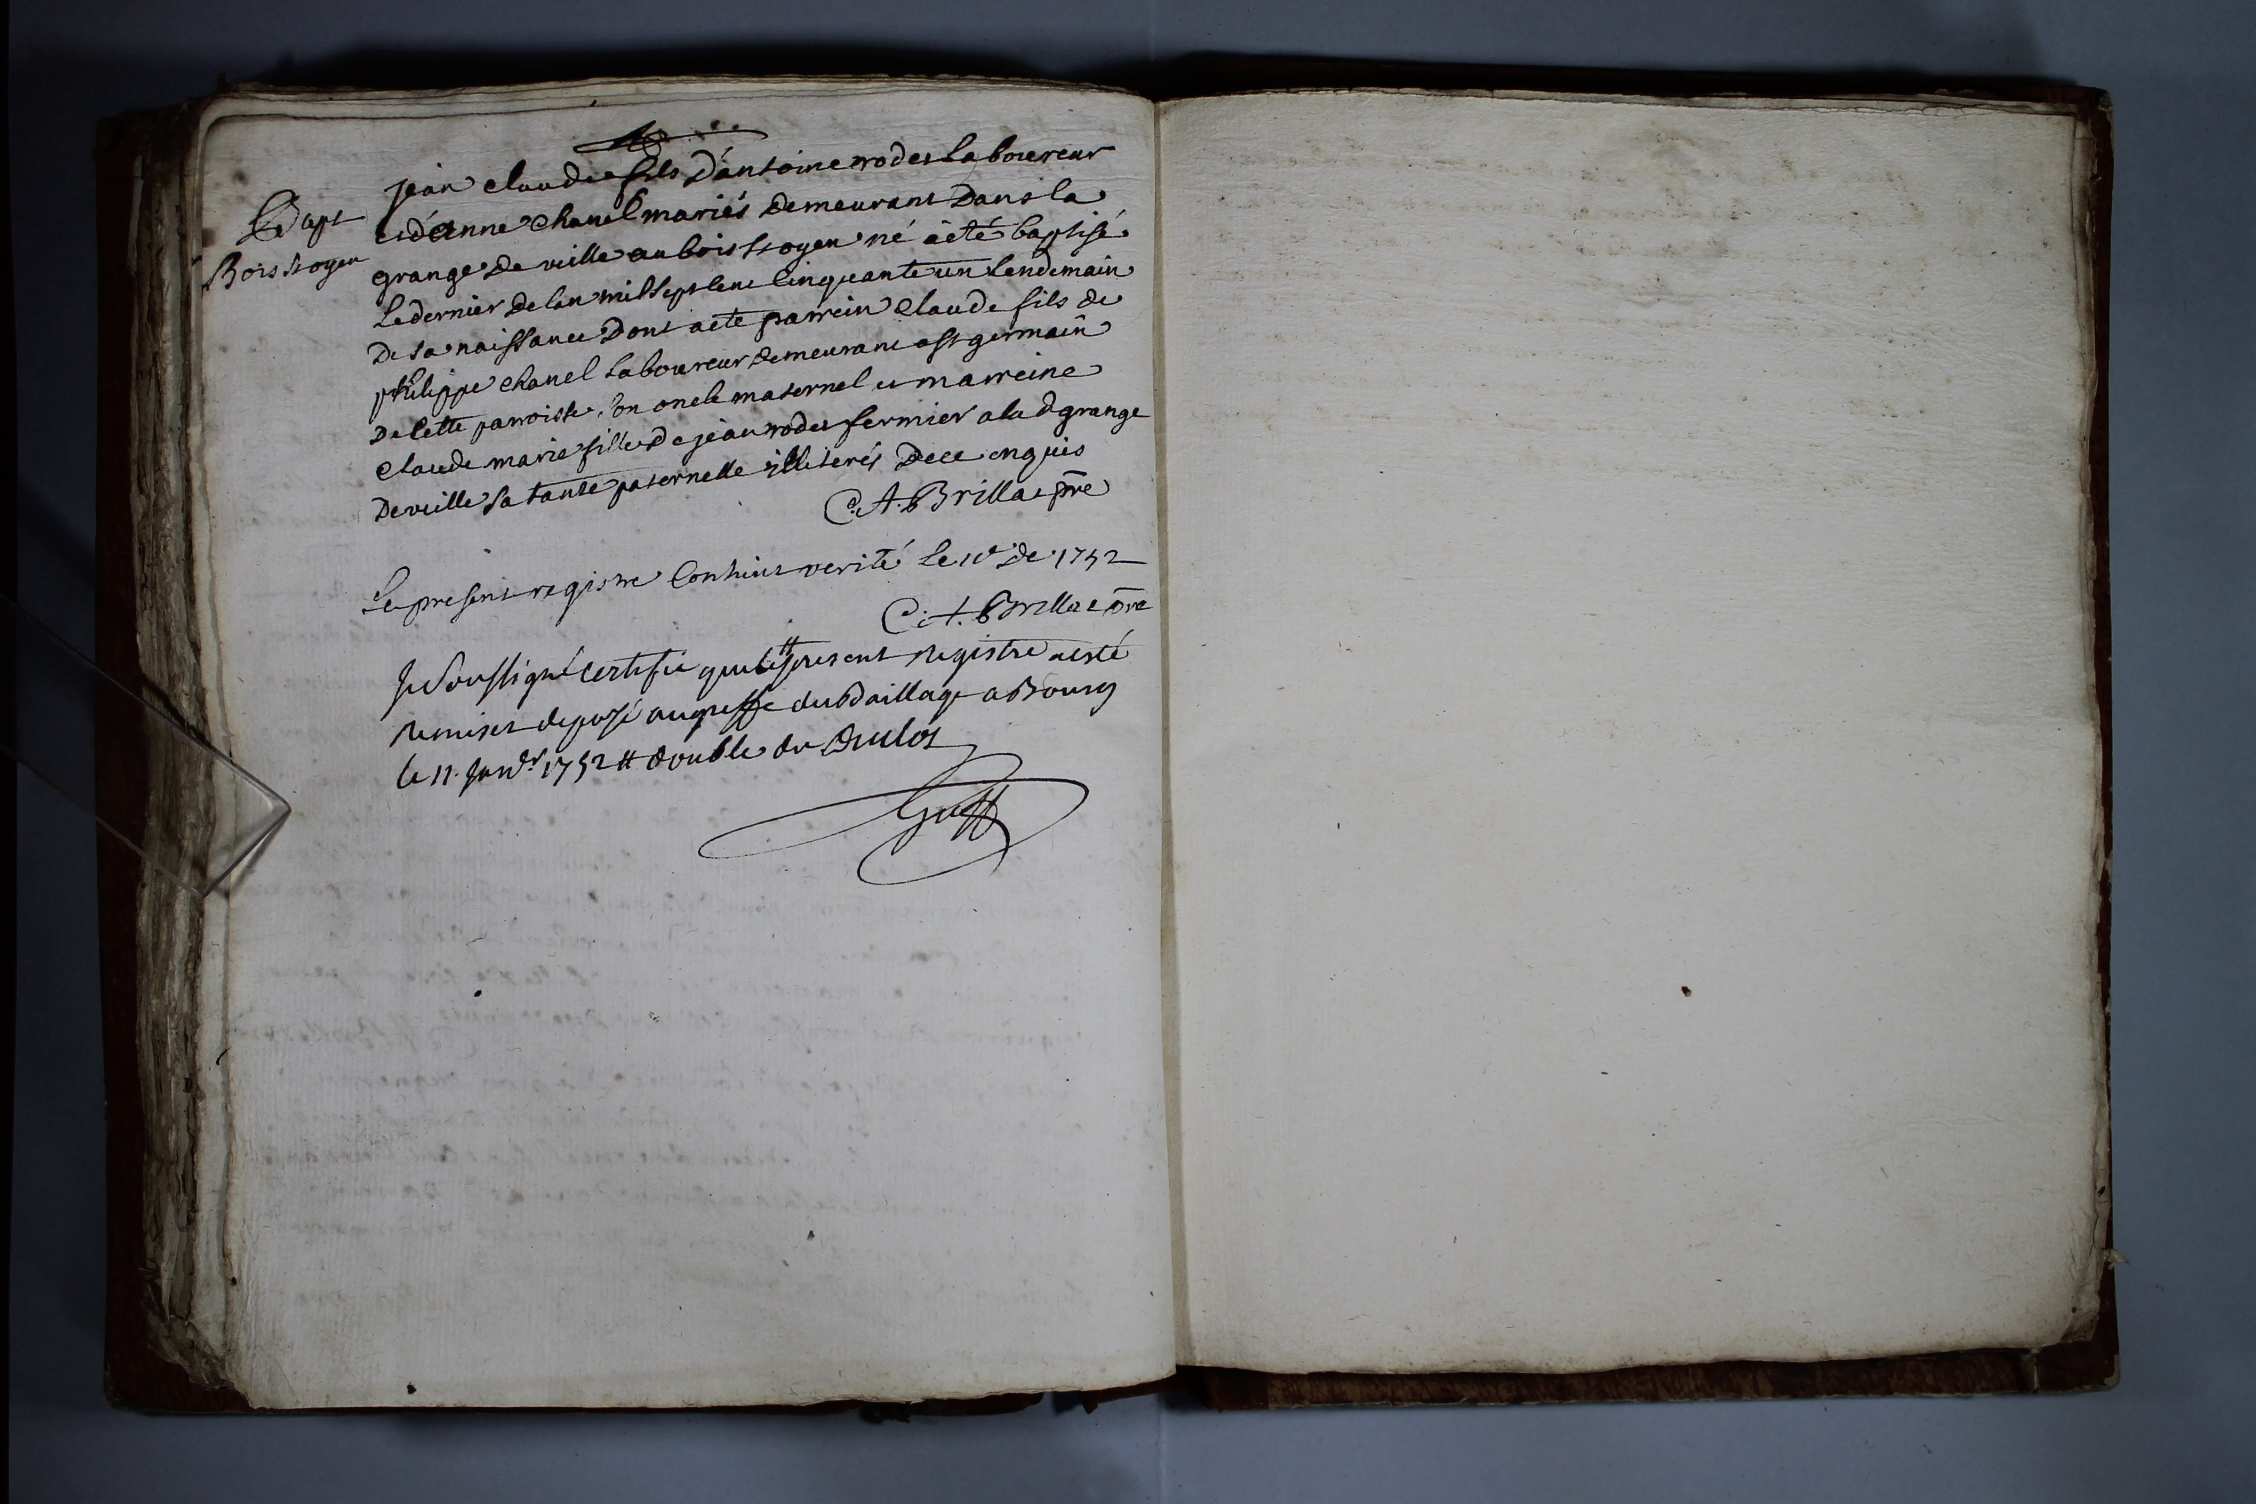 Bapt
Bois troyen
jean claude fils d'antoine rodet laboureur
et d'anne chanel mariés demeurant dans la
grange de veille au bois troyen né a été baptisé
le dernier de l'an mil sept cent cinquante un lendemain
de sa naissance dont acte parrein claude fils de
philippe chanel laboureur demeurant a st germain
de cette parroisse, son oncle maternel et marreine
claude marie fille de jean rodet fermier a la d grange
de veille sa tante paternelle illiterés de ce enquis
C. A. Brillat pre
Le present registre contient verité le 10e de 1752
C. A. Brillat pre
Je soussigné certifie que le # present registre a esté
remis et deposé au greffe du Baillage a Bourg
le 11. Janvr 1752 # double du
Greff